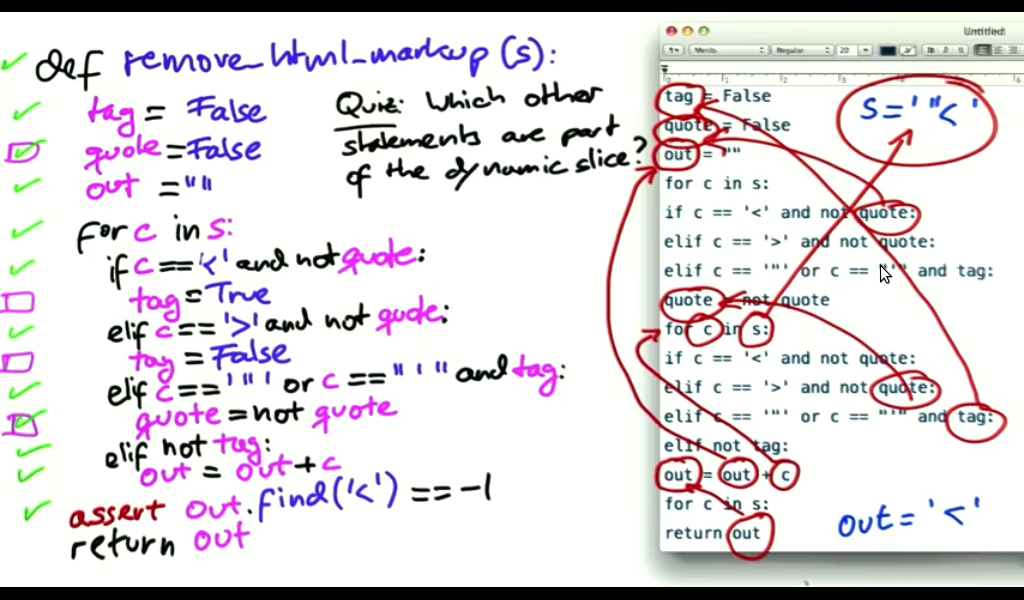 def remove_html_markup (s):
tag = False
quote = False
out = ""
for c in s:
if c == '<' and not quote:
tag = True
elif c == '>' and not quote:
tag = False
elif c == '"' or c == "'" and tag:
quote = not quote
elif not tag:
out = out + c
assert out.find('<') == -1
return out
Quiz: Which other
statements are part
of the dynamic slice?
Untitled
Menlo Regular 20
0 1 2 3 6
tag = False
quote = False
out = ""
for c in s:
if c == '<' and not quote:
elif c == '>' and not quote:
elif c == '"' or c == "'" and tag:
quote = not quote
for c in s:
if c == '<' and not quote:
elif c == '>' and not quote:
elif c == '"' or c == "'" and tag:
elif not tag:
out = out + c
for c in s:
return out
s='"<'
out='<'